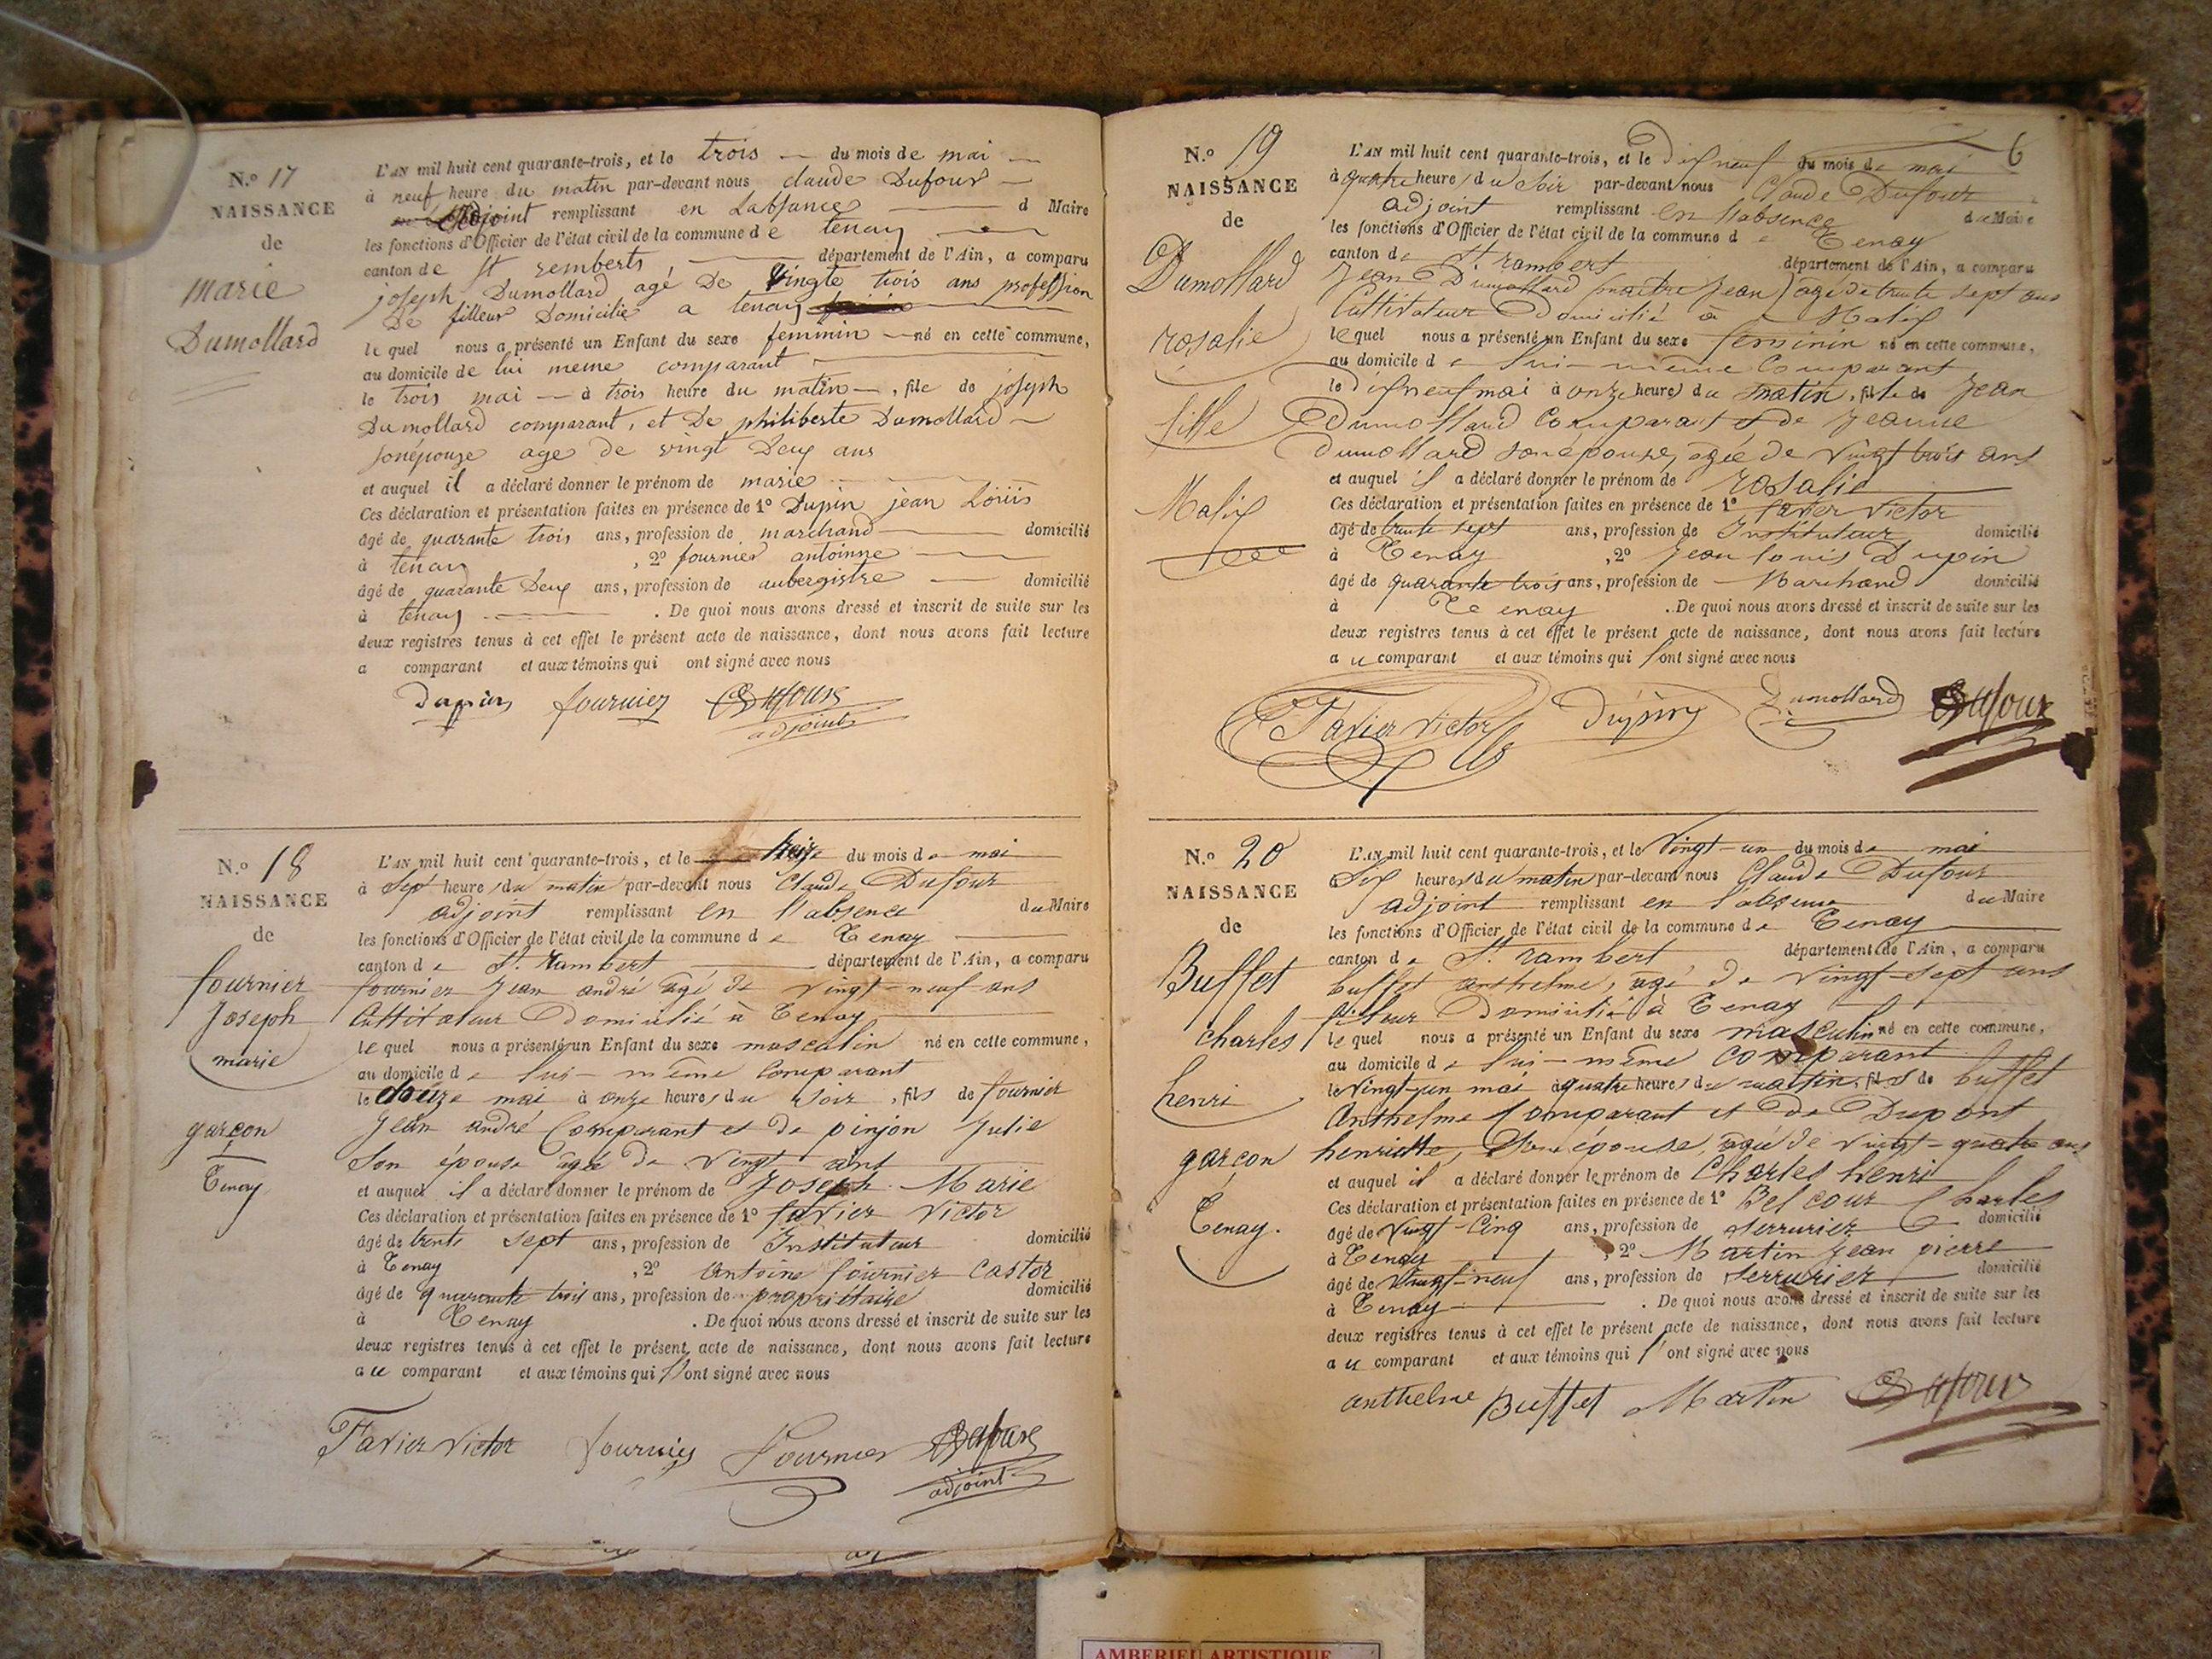 N.o 17
NAISSANCE
de
marie
Dumollard
L'AN mil huit cent quarante-trois, et le trois du mois de mai
à neuf heure du matin par-devant nous claude Dufour
adjoint remplissant en Labsance d Maire
les fonctions d'Officier de l'état civil de la commune de tenay
canton de st remberts, département de l'Ain, a comparu
joseph Dumollard agé De vingte trois ans profession
De filleur Domicilié a tenay
le quel nous a présenté un Enfant du sexe feminin né en cette commune,
au domicile de lui meme comparant
le trois mai à trois heure du matin, file de joseph
Dumollard comparant, et De philiberte Dumollard
sonépouze age de vingt Deux ans
et auquel il a déclaré donner le prénom de marie
Ces déclaration et présentation faites en présence de 1° Dupin jean Loüis
âgé de quarante trois ans, profession de marchand domicilié
à tenay, 2° fournier antoinne
âgé de quarante Deux ans, profession de aubergistre domicilié
à tenay. De quoi nous avons dressé et inscrit de suite sur les
deux registres tenus à cet effet le présent acte de naissance, dont nous avons fait lecture
a comparant et aux témoins qui ont signé avec nous
Dupin fournier Dufour
adjoint
N.o 18
NAISSANCE
de
fournier
Joseph
marie
garçon
Tenay
L'AN mil huit cent quarante-trois, et le treize du mois de mai
à Sept heure du matin par-devant nous Claude Dufour
adjoint remplissant en l'absence du Maire
les fonctions d'Officier de l'état civil de la commune de Tenay
canton de St. Rambert département de l'Ain, a comparu
fournier Jean andré agé de vingt-neuf ans
Cultivateur Domicilié à Tenay
le quel nous a présenté un Enfant du sexe masculin né en cette commune,
au domicile de lui-même Comparant
le douze mai à onze heures du soir, fils de fournier
Jean andré Comparant et de pinjon Julie
Son épouse âgée de vingt ans
et auquel il a déclaré donner le prénom de Joseph Marie
Ces déclaration et présentation faites en présence de 1° favier Victor
âgé de trente sept ans, profession de Instituteur domicilié
à Tenay, 2° Antoine fournier Castor
âgé de quarante trois ans, profession de propriétaire domicilié
à Tenay. De quoi nous avons dressé et inscrit de suite sur les
deux registres tenus à cet effet le présent acte de naissance, dont nous avons fait lecture
au comparant et aux témoins qui l'ont signé avec nous
Favier Victor fournier Fournier Dufour
adjoint
6
N.o 19
NAISSANCE
de
Dumollard
rosalie
fille
Malix
L'AN mil huit cent quarante-trois, et le Dixneuf du mois de mai
à quatre heure du Soir par-devant nous Claude Dufour
adjoint remplissant en l'absence du Maire
les fonctions d'Officier de l'état civil de la commune de Tenay
canton de St rambert département de l'Ain, a comparu
Jean Dumollard (maitre Jean) agé de trente sept ans
Cultivateur Domicilié à Malix
le quel nous a présenté un Enfant du sexe feminin né en cette commune,
au domicile de lui-même Comparant
le Dixneuf mai à onze heures du matin, fille de Jean
Dumollard Comparant et de Jeanne
dumollard son épouse, agée de vingt trois ans
et auquel il a déclaré donner le prénom de rosalie
Ces déclaration et présentation faites en présence de 1° favier Victor
âgé de trente sept ans, profession de Instituteur domicilié
à Tenay, 2° Jean louis Dupin
âgé de quarante trois ans, profession de Marchand domicilié
à Tenay. De quoi nous avons dressé et inscrit de suite sur les
deux registres tenus à cet effet le présent acte de naissance, dont nous avons fait lecture
au comparant et aux témoins qui l'ont signé avec nous
Favier Victor Dupin Dumollard Dufour
N.o 20
NAISSANCE
de
Buffet
charles
henri
garçon
Tenay.
L'AN mil huit cent quarante-trois, et le Vingt-un du mois de mai
à Six heures du matin par-devant nous Claude Dufour
adjoint remplissant en l'absence du Maire
les fonctions d'Officier de l'état civil de la commune de Tenay
canton de St. rambert département de l'Ain, a comparu
buffet anthelme, agé de vingt-sept ans
fileur Domicilié à Tenay
le quel nous a présenté un Enfant du sexe masculin né en cette commune,
au domicile de lui-même comparant
le Vingt-un mai à quatre heures du matin, fils de buffet
Anthelme Comparant et de Dupont
henriette, Son épouse, agée de vingt-quatre ans
et auquel il a déclaré donner le prénom de Charles henri
Ces déclaration et présentation faites en présence de 1° Belcour Charles
âgé de vingt-Cinq ans, profession de serrurier domicilié
à Tenay, 2° Martin Jean pierre
âgé de vingt-neuf ans, profession de serrurier domicilié
à Tenay. De quoi nous avons dressé et inscrit de suite sur les
deux registres tenus à cet effet le présent acte de naissance, dont nous avons fait lecture
au comparant et aux témoins qui l'ont signé avec nous
anthelme Buffet Martin Dufour
AMBERIEU ARTISTIQUE